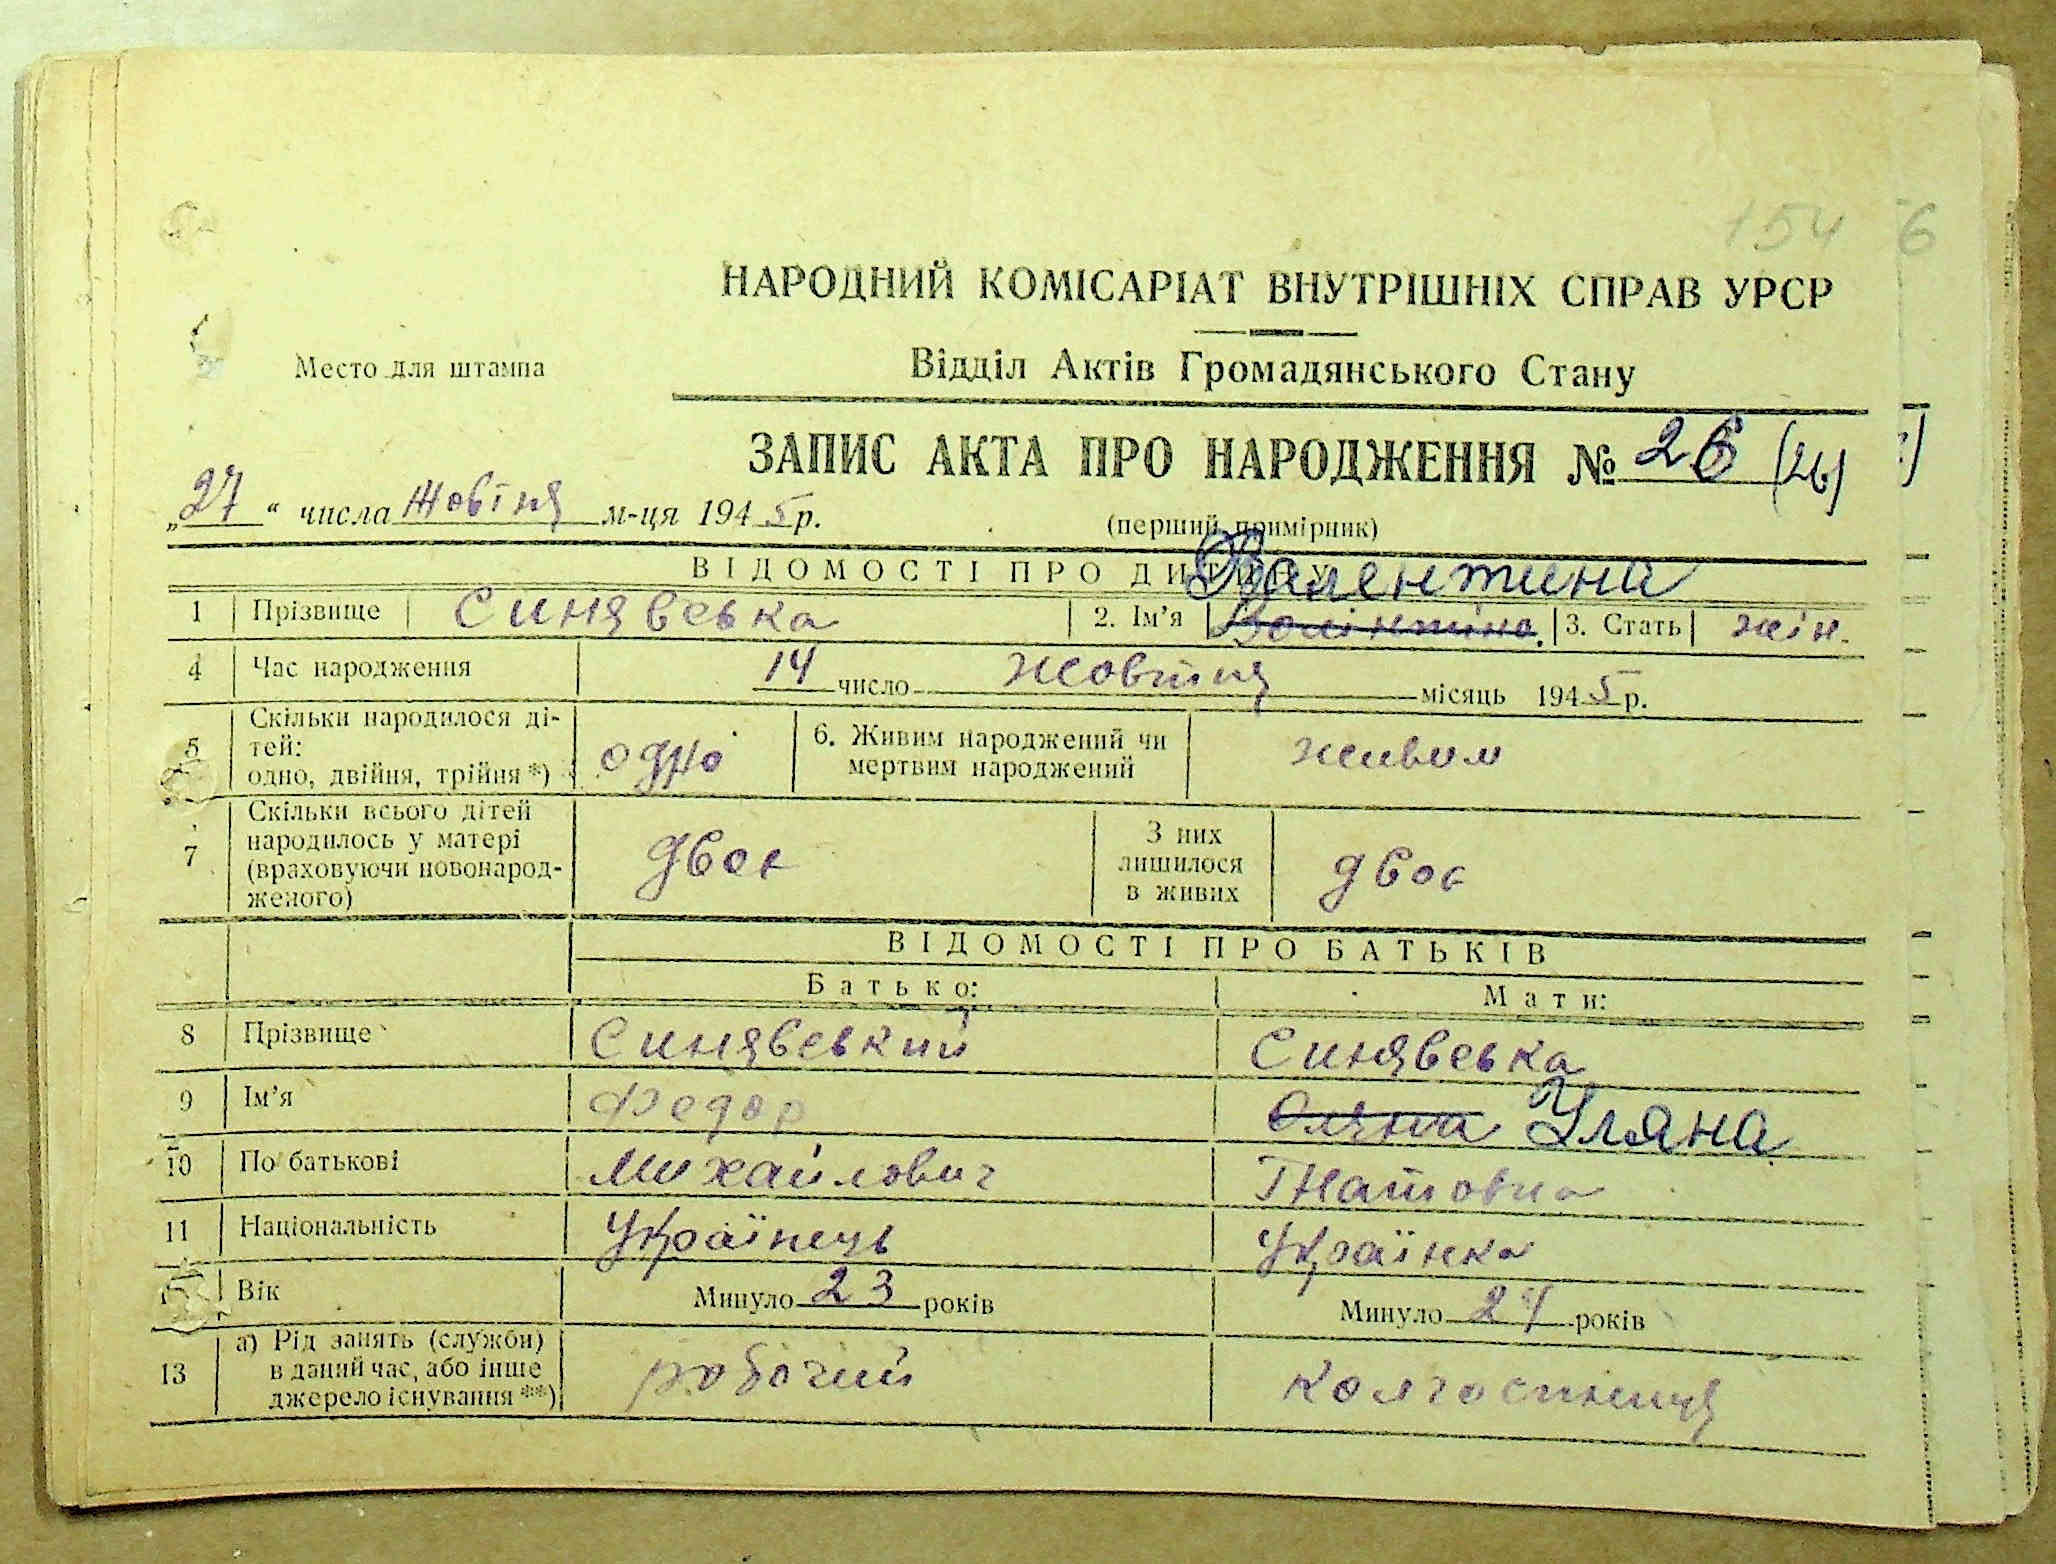 154 6
НАРОДНИЙ КОМІСАРІАТ ВНУТРІШНІХ СПРАВ УРСР
Место для штампа
Відділ Актів Громадянського Стану
ЗАПИС АКТА ПРО НАРОДЖЕННЯ № 26 (26)
„27“ числа Жовтня м-ця 1945 р.
(перший примірник)
ВІДОМОСТІ ПРО ДИТИНУ
Валентина
1 Прізвище Синявська 2. Ім’я Волінтіна. 3. Стать жін.
4 Час народження 14 число Жовтня місяць 1945 р.
5 Скільки народилося ді-
тей:
одно, двійня, трійня *) одно 6. Живим народжений чи
мертвим народжений живим
7 Скільки всього дітей
народилось у матері
(враховуючи новонарод-
женого) двоє З них
лишилося
в живих двоє
ВІДОМОСТІ ПРО БАТЬКІВ
Батько: Мати:
8 Прізвище Синявський Синявська
9 Ім’я Федор Оляна Уляна
10 По батькові Михайлович Гнатовна
11 Національність Українець Українка
Вік Минуло 23 років Минуло 24 років
13 а) Рід занять (служби)
в даний час, або інше
джерело існування **) робочий колгоспниця